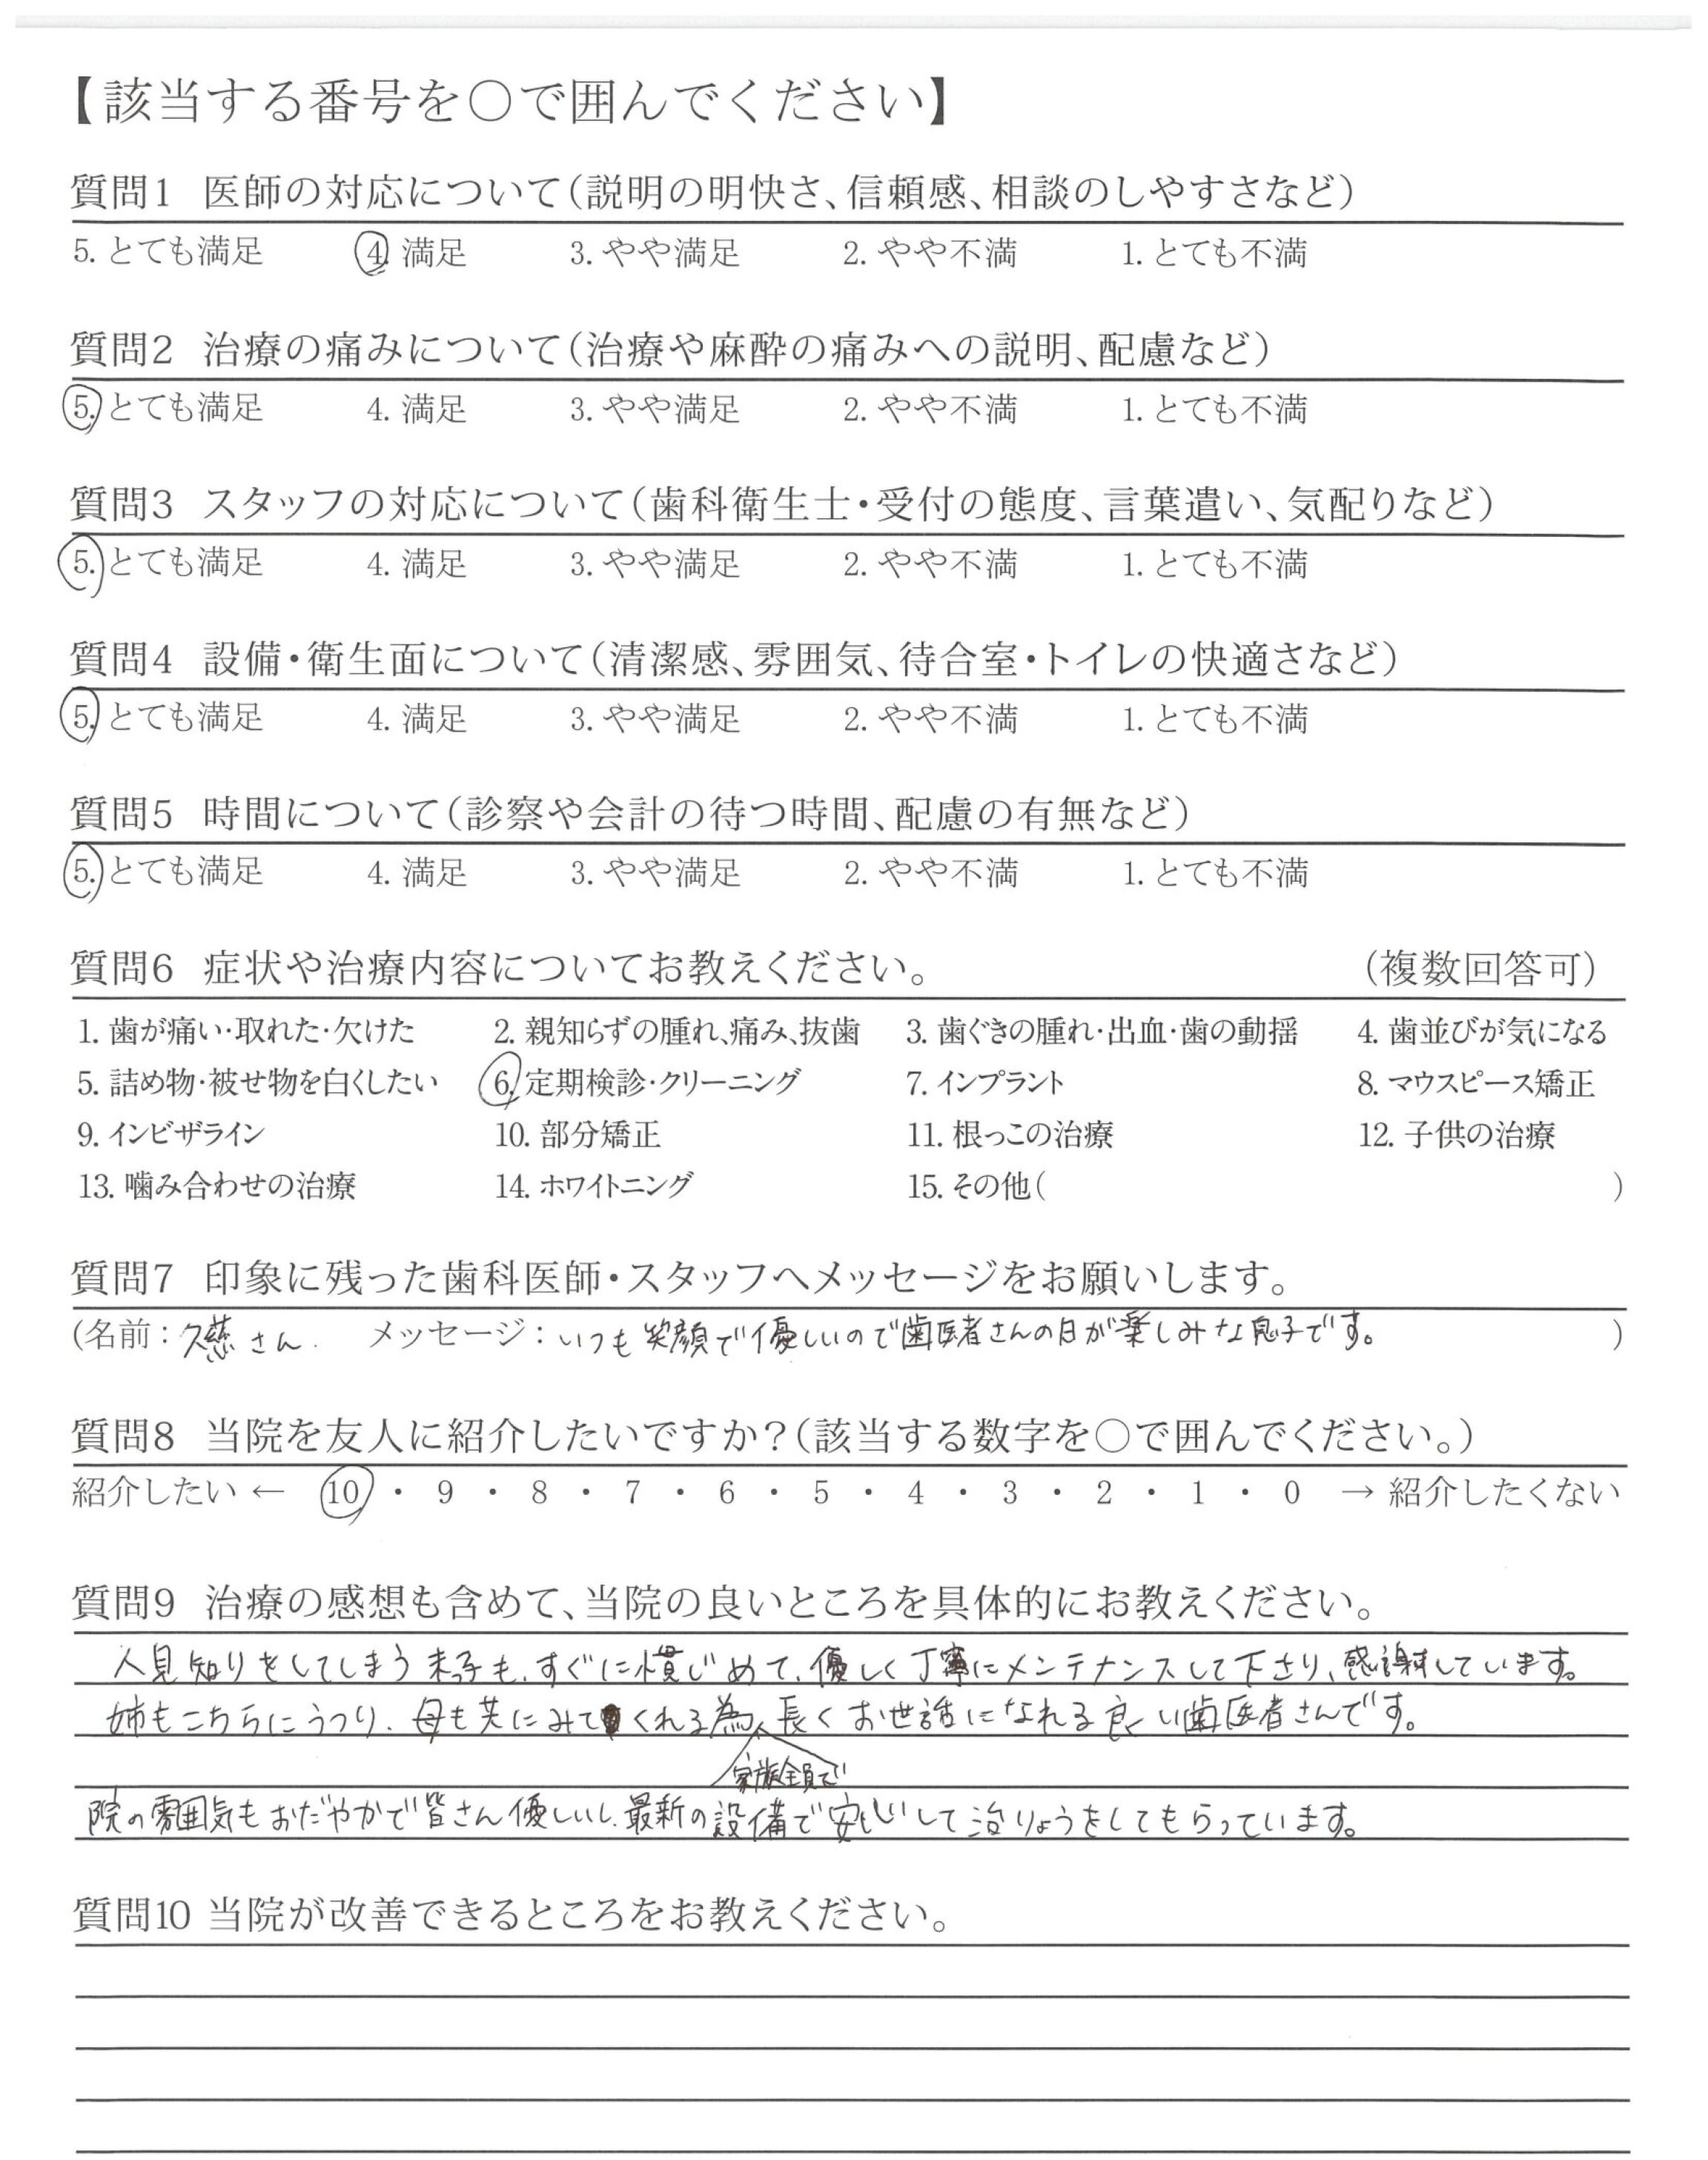 【該当する番号を〇で囲んでください】
質問1 医師の対応について(説明の明快さ、信頼感、相談のしやすさなど)
5. とても満足 4. 満足 3. やや満足 2. やや不満 1. とても不満
質問2 治療の痛みについて(治療や麻酔の痛みへの説明、配慮など)
5. とても満足 4. 満足 3. やや満足 2. やや不満 1. とても不満
質問3 スタッフの対応について(歯科衛生士・受付の態度、言葉遣い、気配りなど)
5. とても満足 4. 満足 3. やや満足 2. やや不満 1. とても不満
質問4 設備・衛生面について(清潔感、雰囲気、待合室・トイレの快適さなど)
5. とても満足 4. 満足 3. やや満足 2. やや不満 1. とても不満
質問5 時間について(診察や会計の待つ時間、配慮の有無など)
5. とても満足 4. 満足 3. やや満足 2. やや不満 1. とても不満
質問6 症状や治療内容についてお教えください。 (複数回答可)
1. 歯が痛い・取れた・欠けた 2. 親知らずの腫れ、痛み、抜歯 3. 歯ぐきの腫れ・出血・歯の動揺 4. 歯並びが気になる
5. 詰め物・被せ物を白くしたい 6. 定期検診・クリーニング 7. インプラント 8. マウスピース矯正
9. インビザライン 10. 部分矯正 11. 根っこの治療 12. 子供の治療
13. 噛み合わせの治療 14. ホワイトニング 15. その他( )
質問7 印象に残った歯科医師・スタッフへメッセージをお願いします。
(名前：久慈さん. メッセージ：いつも笑顔で優しいので歯医者さんの日が楽しみな息子です。 )
質問8 当院を友人に紹介したいですか？(該当する数字を〇で囲んでください。)
紹介したい ← 10 ・ 9 ・ 8 ・ 7 ・ 6 ・ 5 ・ 4 ・ 3 ・ 2 ・ 1 ・ 0 → 紹介したくない
質問9 治療の感想も含めて、当院の良いところを具体的にお教えください。
人見知りをしてしまう末子も、すぐに慣じめて、優しく丁寧にメンテナンスして下さり、感謝しています。
姉もこちらにうつり、母も共にみてくれる為、長くお世話になれる良い歯医者さんです。
家族全員で
院の雰囲気もおだやかで皆さん優しいし、最新の設備で安心して治りょうをしてもらっています。
質問10 当院が改善できるところをお教えください。